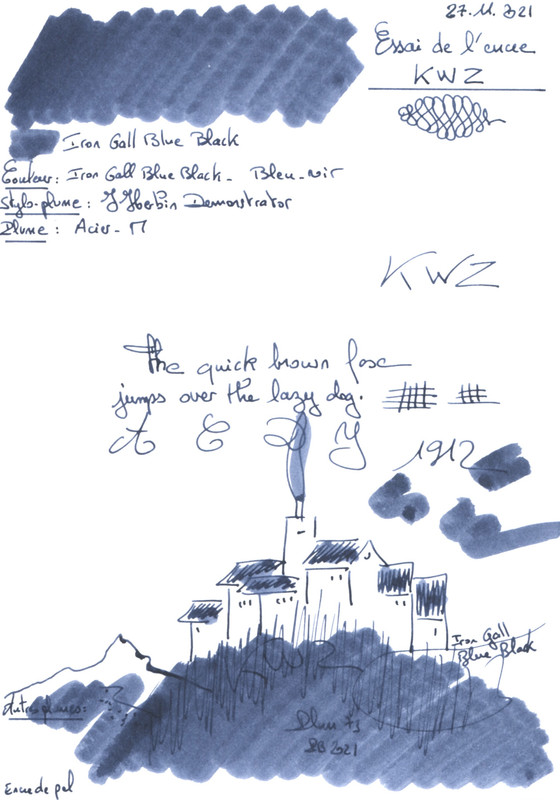 27.11.2021
Essai de l'encre
KWZ
Iron Gall Blue Black
Couleur: Iron Gall Blue Black - Bleu-noir
Stylo-plume: J Herbin Demonstrator
Plume: Acier - M
KWZ
The quick brown fox
jumps over the lazy dog.
A E D Y
1912
Iron Gall
Blue Black
KWZ
Autres plumes:
2021
Encre de pol